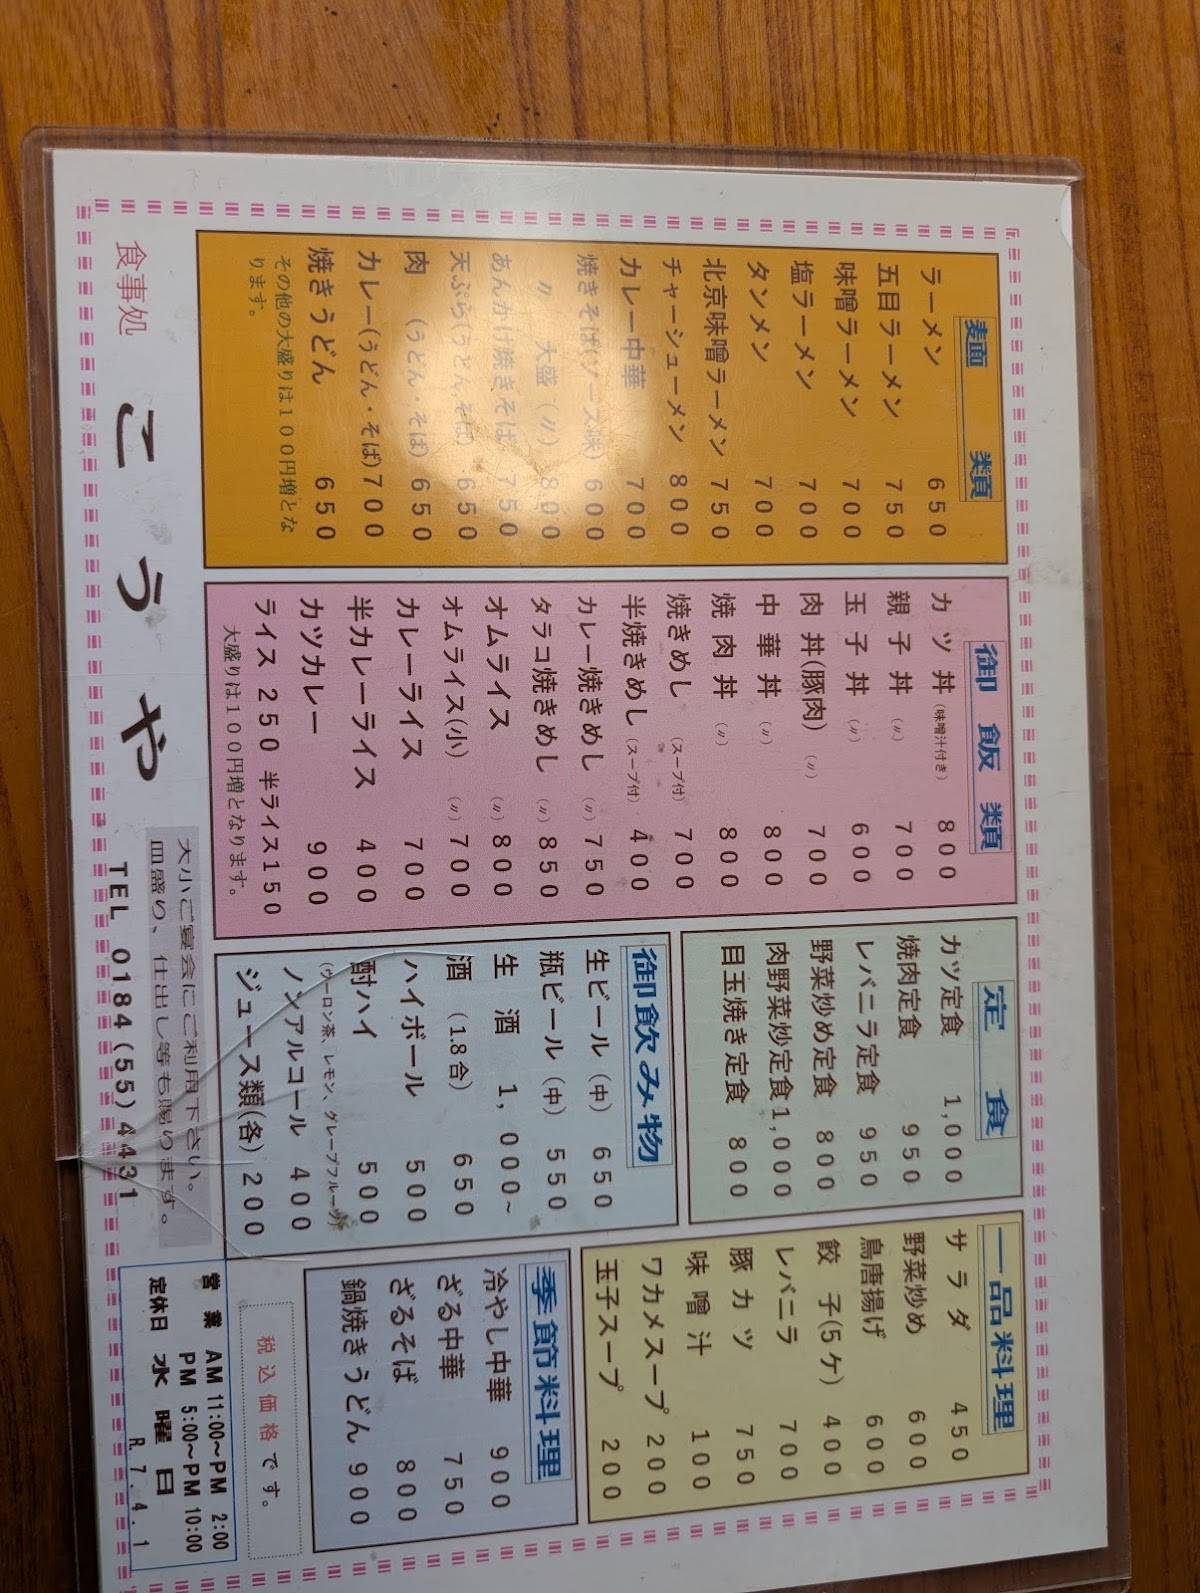 麦面 類
ラーメン 650
五目ラーメン 750
味噌ラーメン 700
塩ラーメン 700
タンメン 700
北京味噌ラーメン 750
チャーシューメン 800
カレー中華 700
焼きそば(ソース味) 600
〃 大盛(〃) 800
あんかけ焼きそば 750
天ぷら(うどん,そば) 650
肉 (うどん・そば) 650
カレー(うどん・そば) 700
焼きうどん 650
その他の大盛りは100円増とな
ります。
御 飯 類
カツ丼(味噌汁付き) 800
親子丼(〃) 700
玉子丼(〃) 600
肉丼(豚肉)(〃) 700
中華丼(〃) 800
焼肉丼(〃) 800
焼きめし(スープ付) 700
半焼きめし(スープ付) 400
カレー焼きめし(〃) 750
タラコ焼きめし(〃) 850
オムライス(〃) 800
オムライス(小)(〃) 700
カレーライス 700
半カレーライス 400
カツカレー 900
ライス 250 半ライス150
大盛りは100円増となります。
定 食
カツ定食 1,000
焼肉定食 950
レバニラ定食 950
野菜炒め定食 800
肉野菜炒定食1,000
目玉焼き定食 800
御飲み物
生ビール(中) 650
瓶ビール(中) 550
生 酒 1,000~
酒 (1.8合) 650
ハイボール 500
酎ハイ 500
(ウーロン茶、レモン、グレープフルーツ)
ノンアルコール 400
ジュース類(各) 200
一品料理
サラダ 450
野菜炒め 600
鳥唐揚げ 600
餃 子(5ケ) 400
レバニラ 700
豚カツ 750
味噌汁 100
ワカメスープ 200
玉子スープ 200
季節料理
冷やし中華 900
ざる中華 750
ざるそば 800
鍋焼きうどん 900
税込価格です。
食事処 こうや
大小ご宴会にご利用下さい。
皿盛り、仕出し等も賜ります。
TEL 0184(55)4431
営 業 AM 11:00~PM 2:00
PM 5:00~PM 10:00
定休日 水 曜 日
R.7.4.1